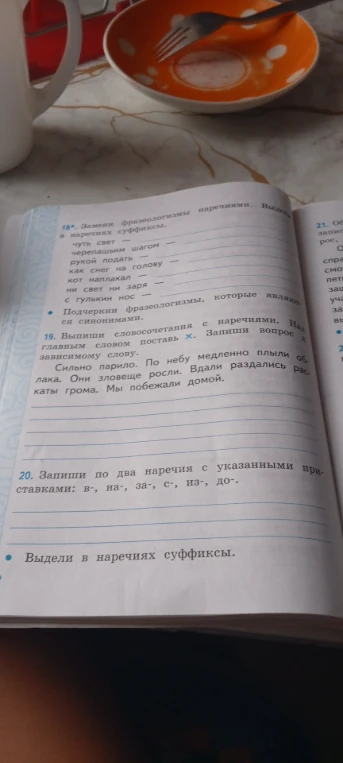 18*. Замени фразеологизмы наречиями. Выдели
в наречиях суффиксы.
чуть свет —
черепашьим шагом —
рукой подать —
как снег на голову —
кот наплакал —
ни свет ни заря —
с гулькин нос —
• Подчеркни фразеологизмы, которые являют-
ся синонимами.
19. Выпиши словосочетания с наречиями. Над
главным словом поставь х. Запиши вопрос к
зависимому слову.
Сильно парило. По небу медленно плыли об-
лака. Они зловеще росли. Вдали раздались рас-
каты грома. Мы побежали домой.
20. Запиши по два наречия с указанными при-
ставками: в-, на-, за-, с-, из-, до-.
• Выдели в наречиях суффиксы.
21.